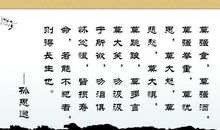 莫强食，莫强酒，
莫强舉重，莫憂
思，莫大怒，莫
悲愁，莫大懼，
莫跳踉，莫多言，
莫大笑。勿汲汲
于所欲，勿悁悁
懷忿恨，皆損壽
命。若能不犯者，
則得長生也。
——孫思邈